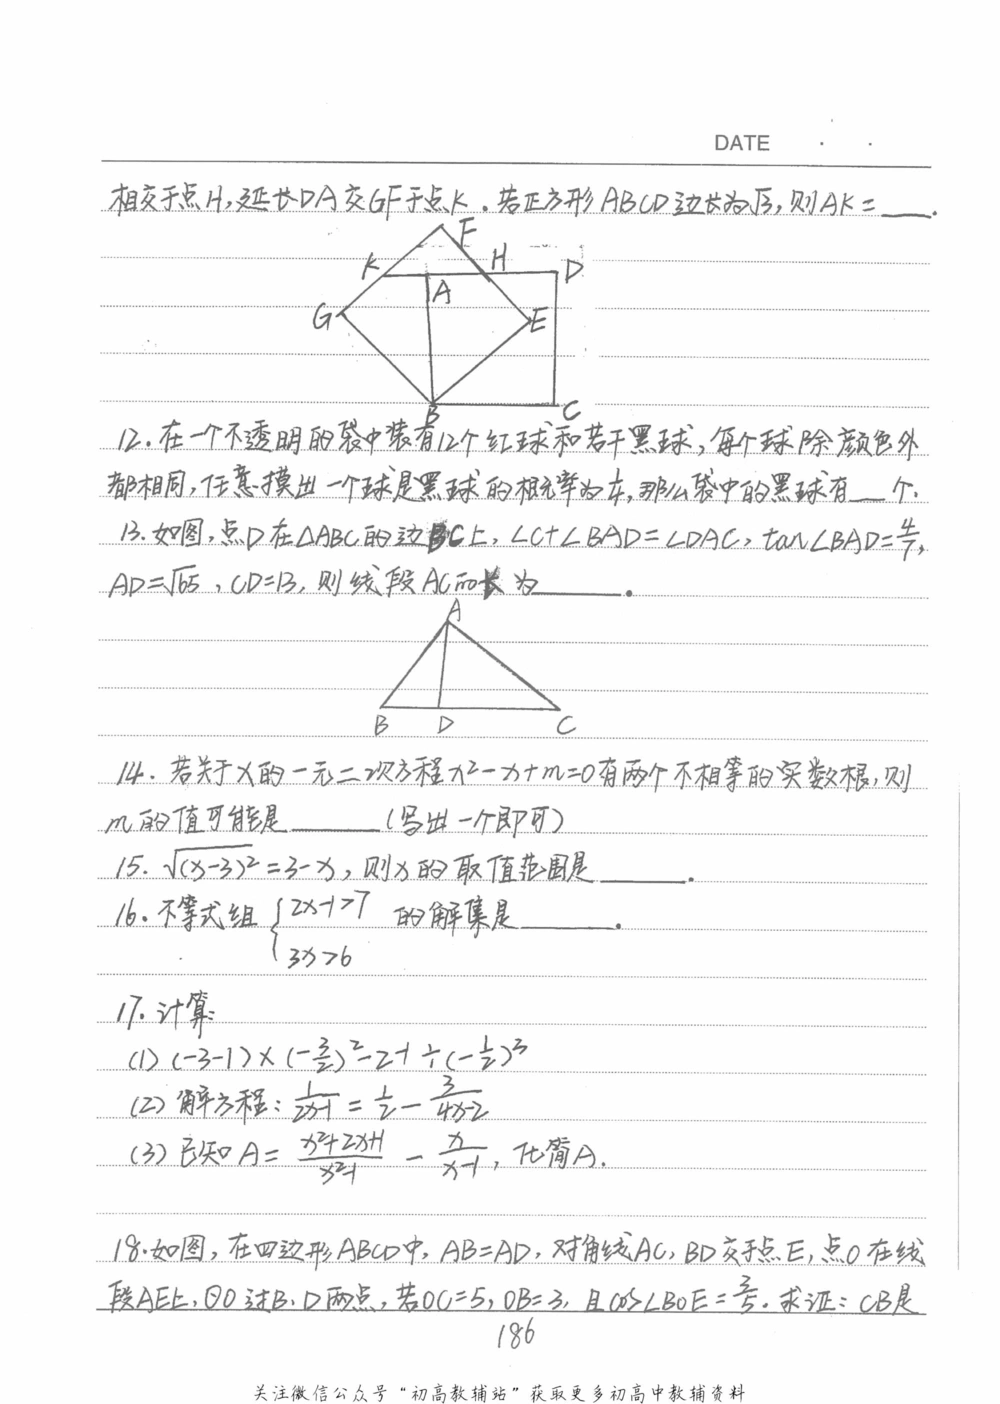 DATE
相交于点H,延长DA交GF于点K.若正方形ABCD边长为√3,则AK=___.
F
K
H
D
A
G
E
B
C
12.在一个不透明的袋中装有12个红球和若干黑球,每个球除颜色外
都相同,任意摸出一个球是黑球的概率为1/4,那么袋中的黑球有__个.
13.如图,点D在△ABC的边BC上,∠C+∠BAD=∠DAC,tan∠BAD=4/7,
AD=√65,CD=13,则线段AC的长为_____.
A
B
D
C
14.若关于x的一元二次方程x²-x+m=0有两个不相等的实数根,则
m的值可能是_____(写出一个即可)
15.√(x-3)²=3-x,则x的取值范围是_____.
16.不等式组{2x-1>7 的解集是_____.
3x>6
17.计算:
(1)(-3-1)×(-3/2)²-2-1÷(-1/2)³
(2)解方程:1/(2x-1)=1/2-3/(4x-2)
(3)已知A=(x²+2x+1)/(x²-1)-x/(x-1),化简A.
18.如图,在四边形ABCD中,AB=AD,对角线AC,BD交于点E,点O在线
段AE上,⊙O过B、D两点,若OC=5,OB=3,且cos∠BOE=3/5.求证:CB是
186
关注微信公众号“初高教辅站”获取更多初高中教辅资料